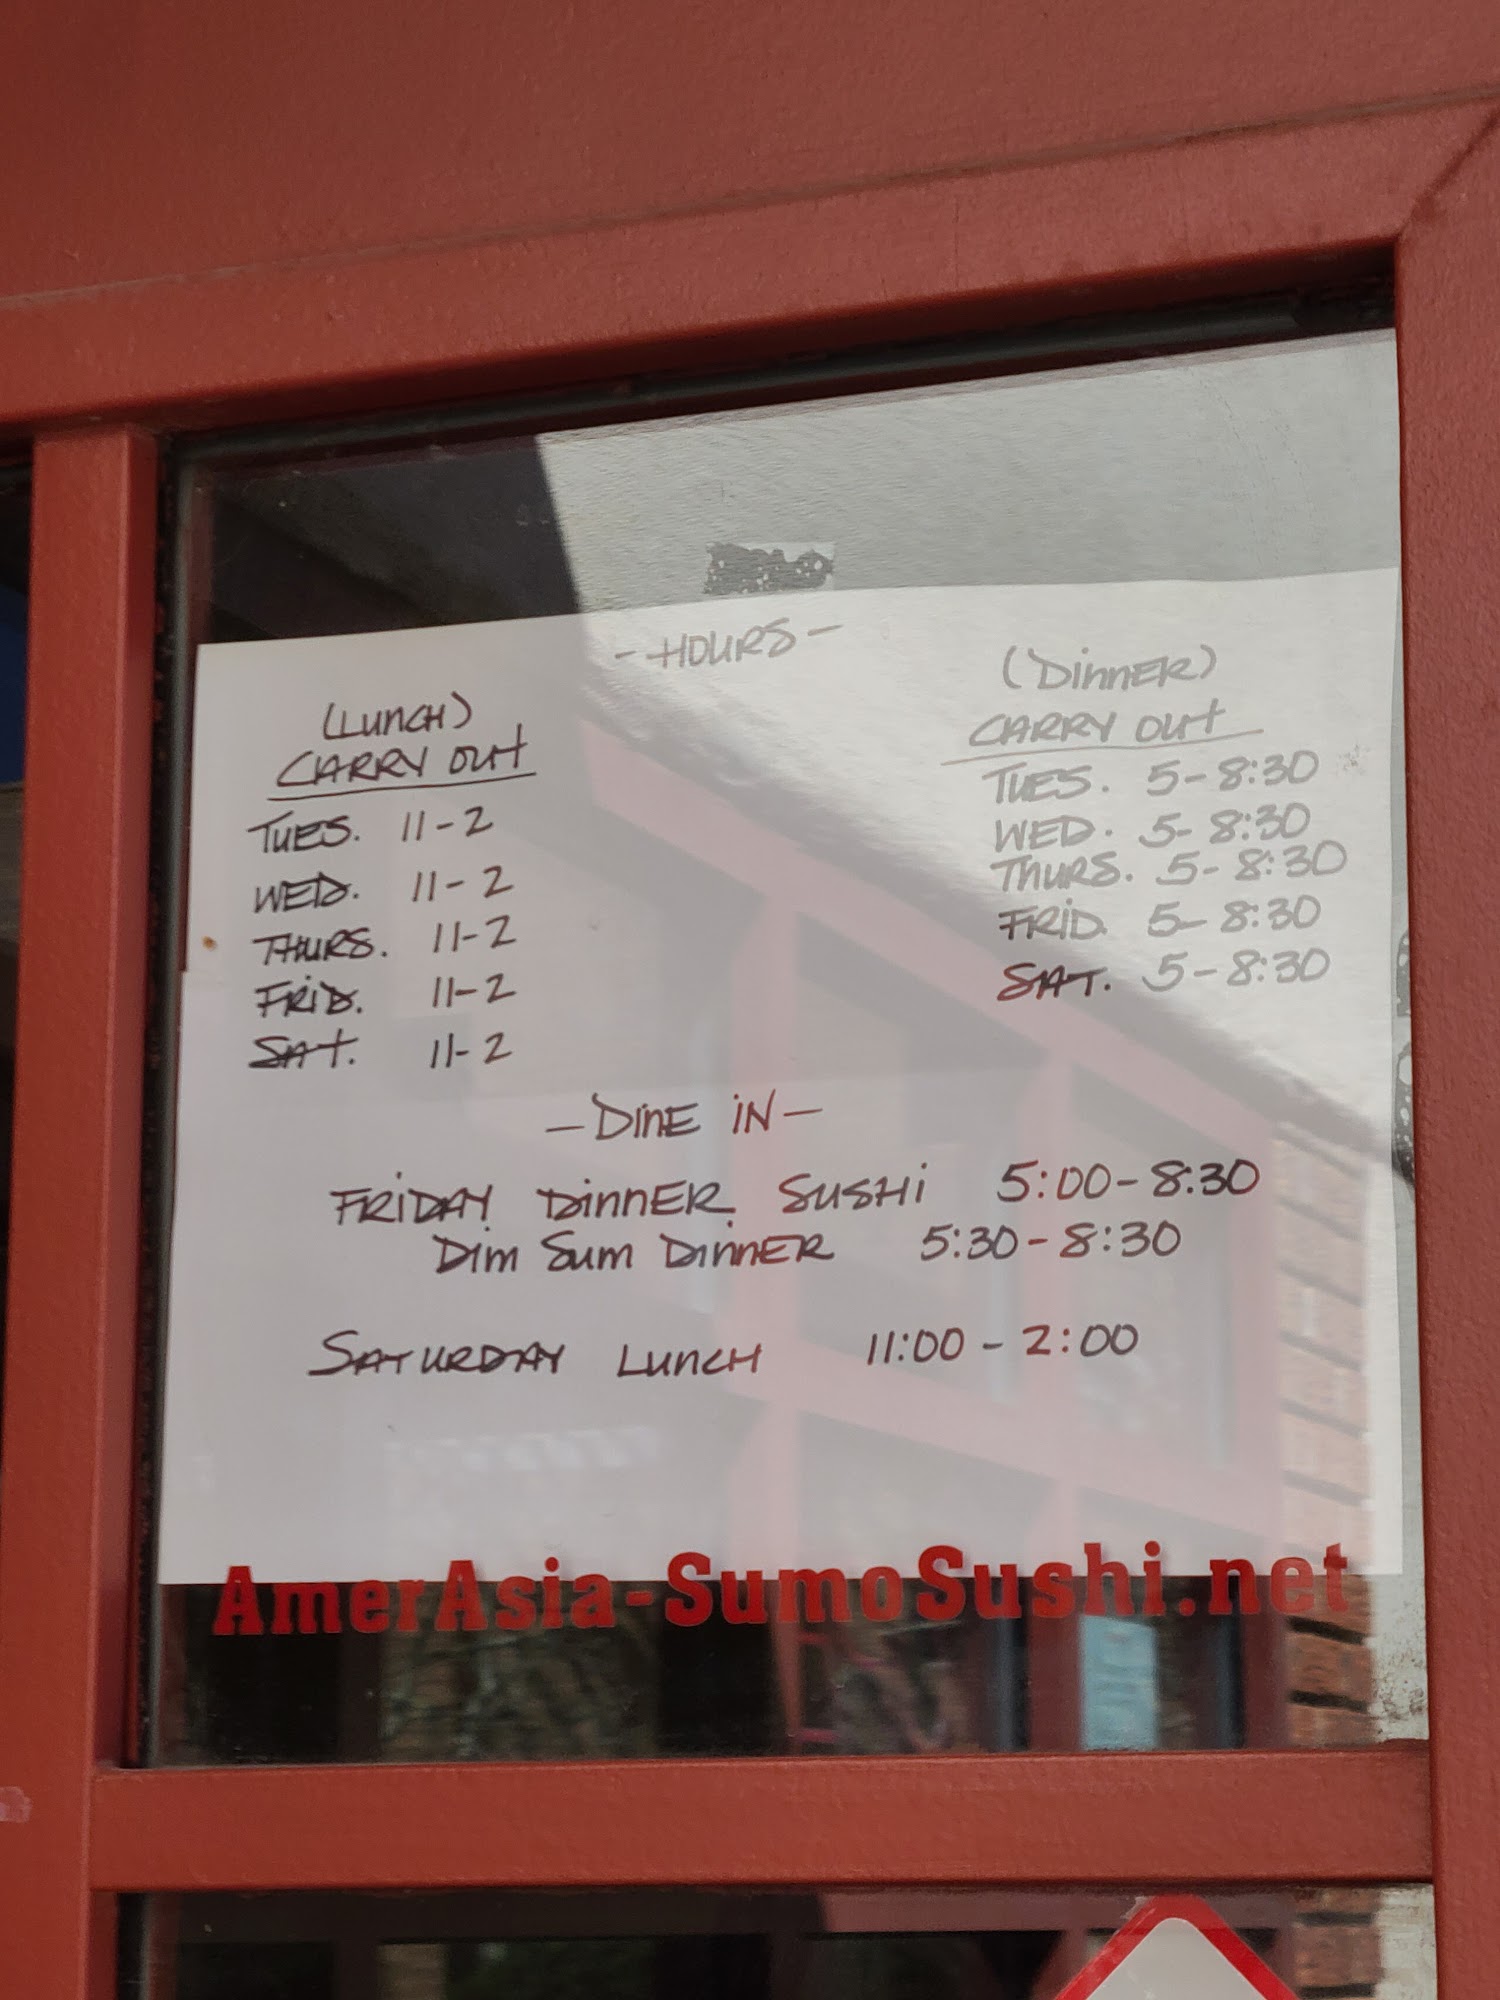 -HOURS-
(LUNCH)
CARRY OUT
TUES. 11-2
WED. 11-2
THURS. 11-2
FRID. 11-2
SAT. 11-2
(DinnER)
CARRY OUT
TUES. 5-8:30
WED. 5-8:30
THURS. 5-8:30
FRiD. 5-8:30
SAT. 5-8:30
-DinE iN-
FRiDAY DinnER SUSHi 5:00-8:30
Dim Sum DinnER 5:30-8:30
SATURDAY LUNCH 11:00-2:00
AmerAsia-SumoSushi.net